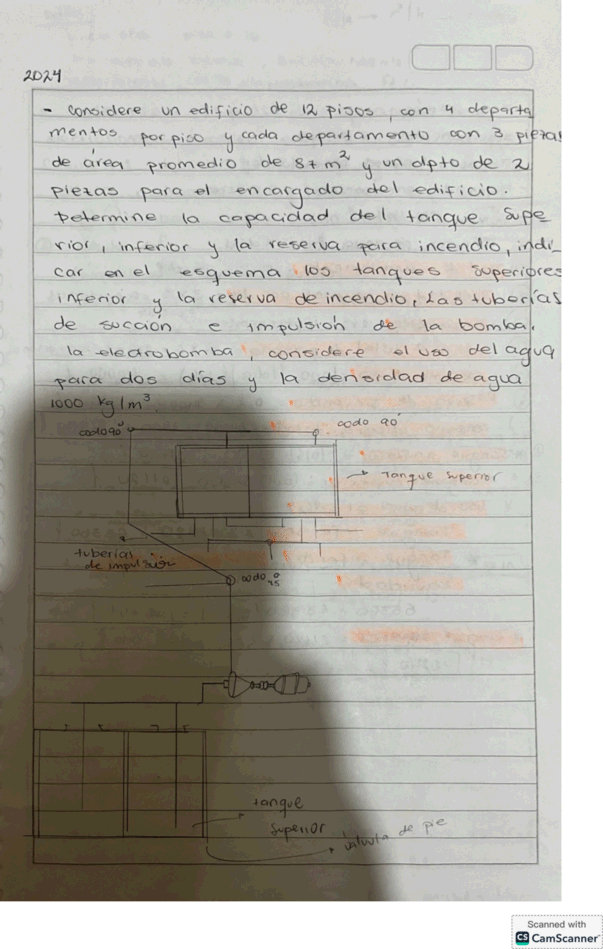 2024
- Considere un edificio de 12 pisos, con 4 departa
mentos por piso y cada departamento con 3 piezas
de área promedio de 87 m² y un dpto de 2
piezas para el encargado del edificio.
Determine la capacidad del tanque supe
rior, inferior y la reserva para incendio, indi_
car en el esquema los tanques superiores
inferior y la reserva de incendio, Las tuberías
de succión e impulsión de la bomba.
la electrobomba, considere el uso del agua
para dos días y la densidad de agua
1000 kg/m³.
codo 90°
codo 90°
Tanque superior
tuberías
de impulsión
codo 45°
tanque
superior
válvula de pie
Scanned with
CS CamScanner